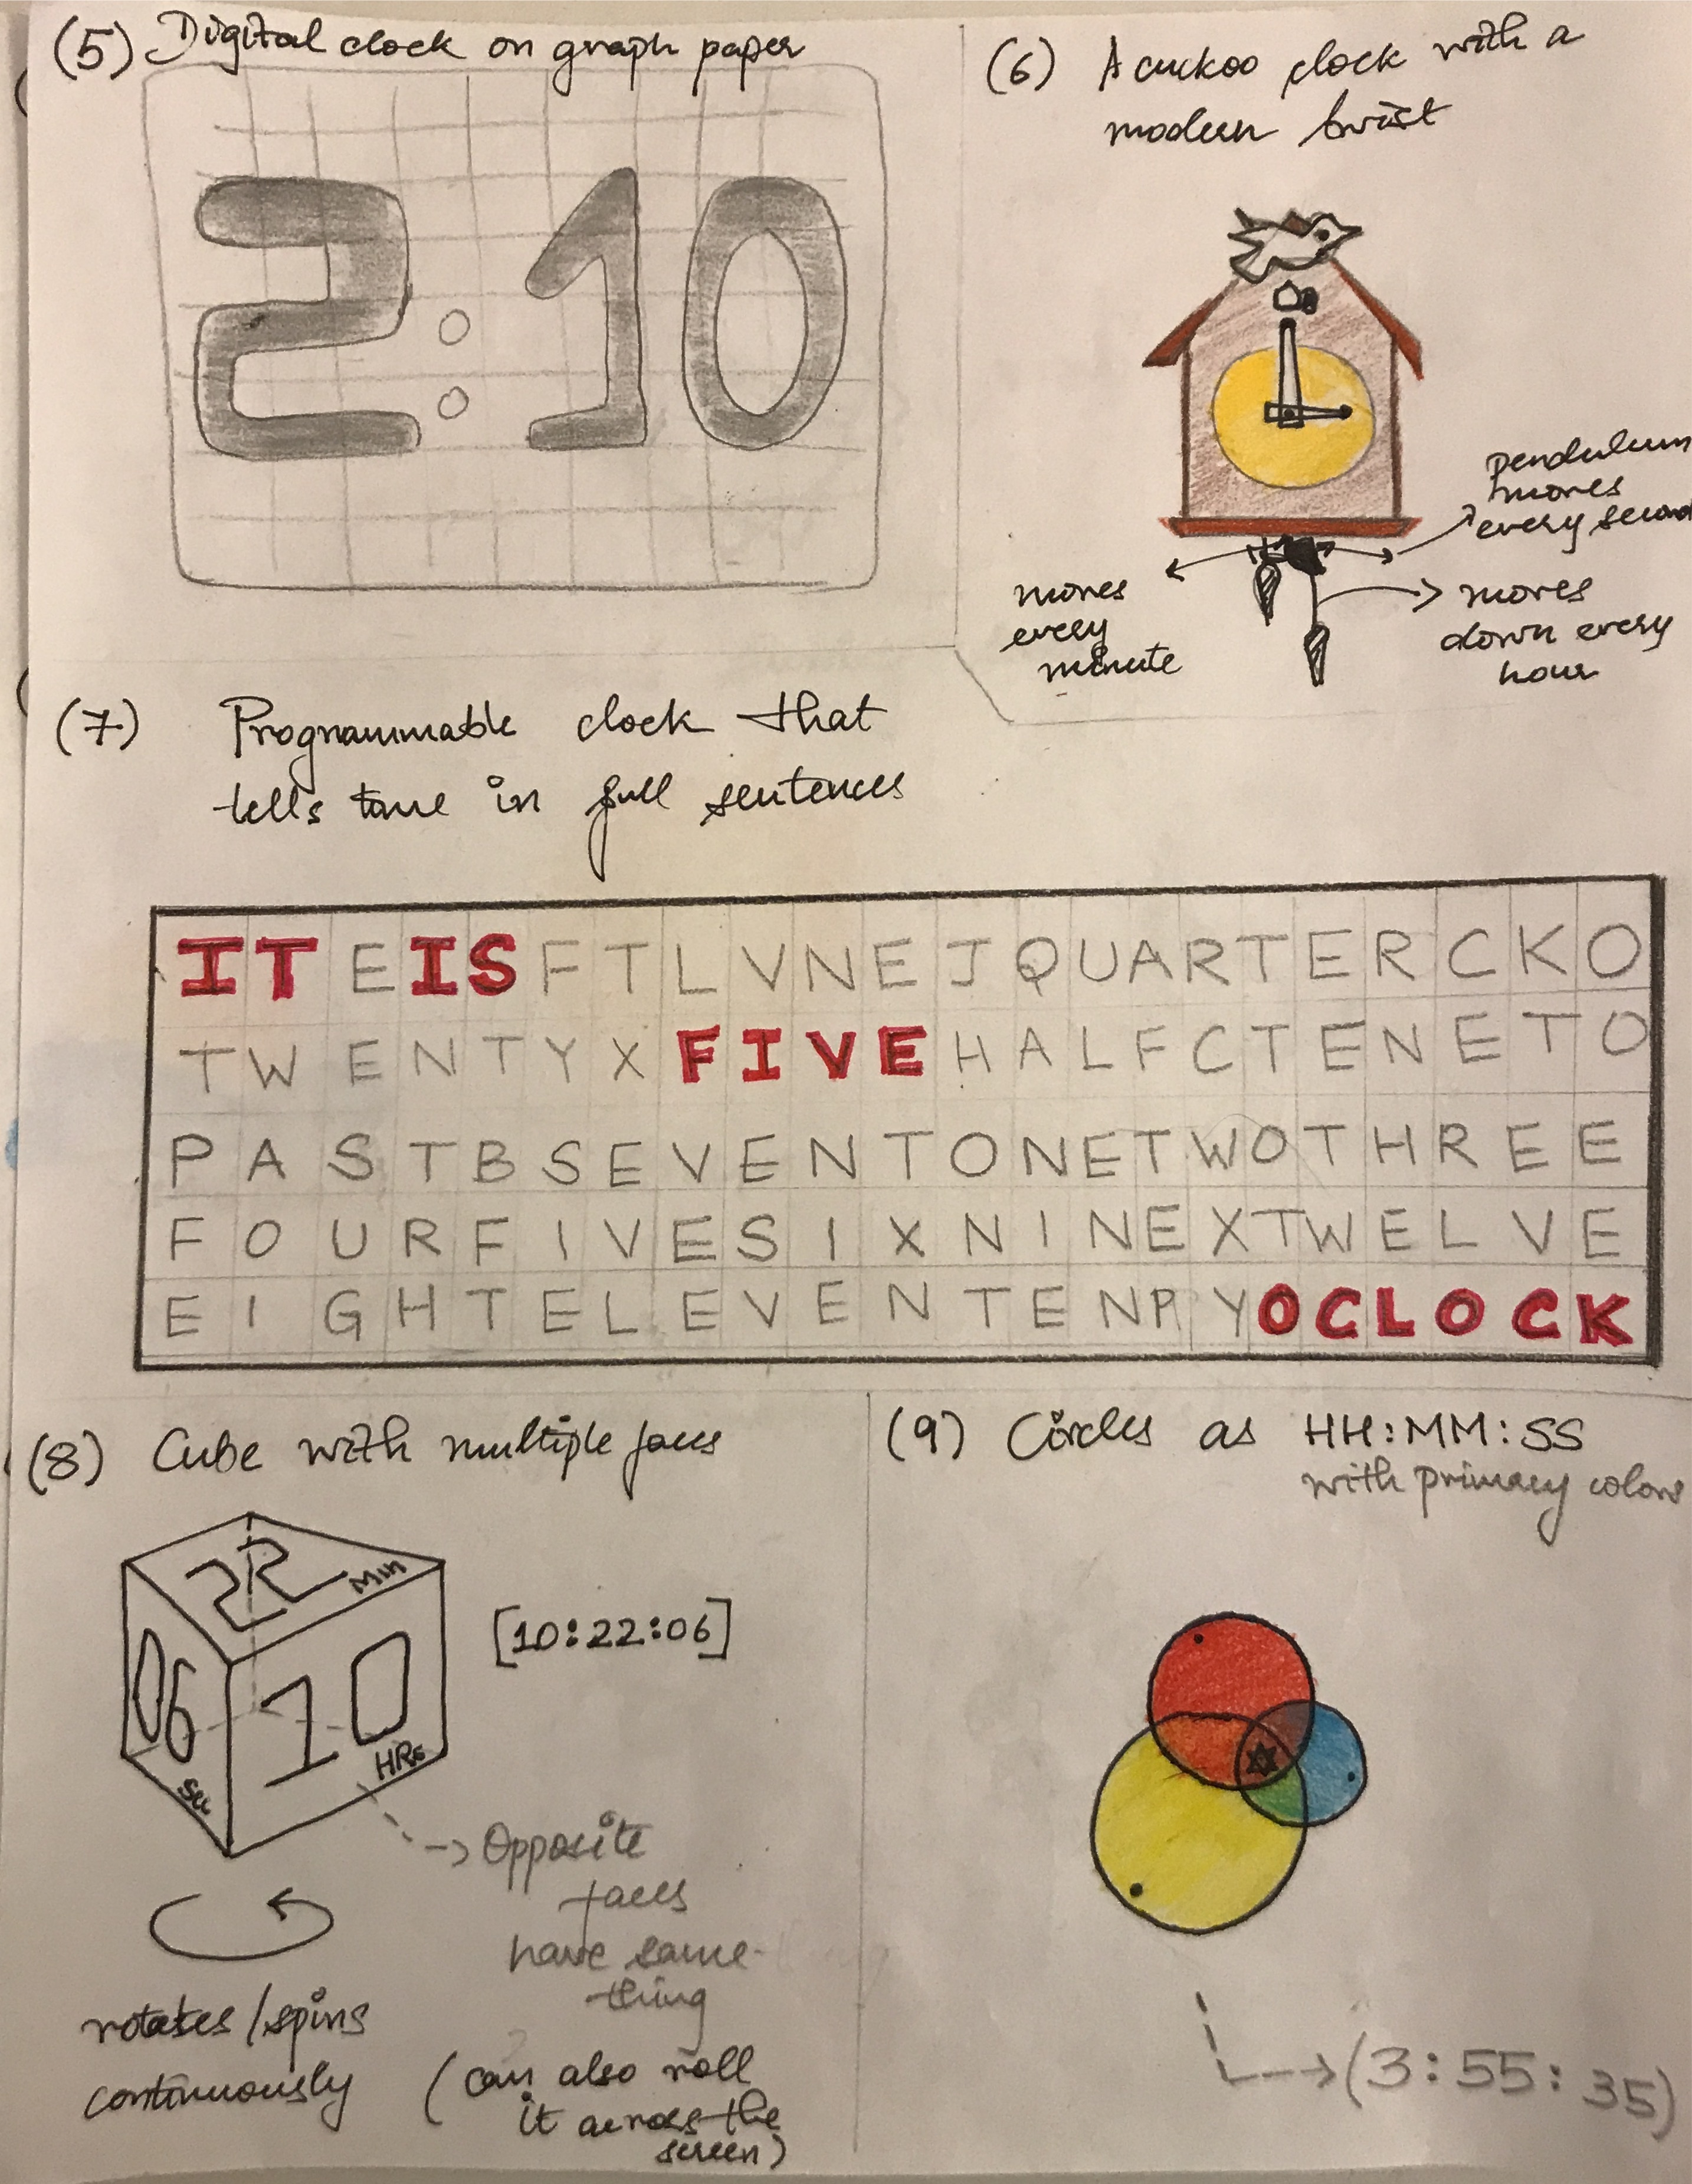 (5) Digital clock on graph paper
2:10
(6) A cuckoo clock with a
modern twist
pendulum
moves
every second
moves
every
minute
moves
down every
hour
(7) Programmable clock that
tells time in full sentences
IT E IS F T L V N E J Q U A R T E R C K O
T W E N T Y X F I V E H A L F C T E N E T O
P A S T B S E V E N T O N E T W O T H R E E
F O U R F I V E S I X N I N E X T W E L V E
E I G H T E L E V E N T E N P Y O C L O C K
(8) Cube with multiple faces
22 Min
06 Sec
10 HRs
[10:22:06]
Opposite
faces
have same
thing
rotates/spins
continuously
(can also roll
it across the
screen)
(9) Circles as HH:MM:SS
with primary colors
(3:55:35)